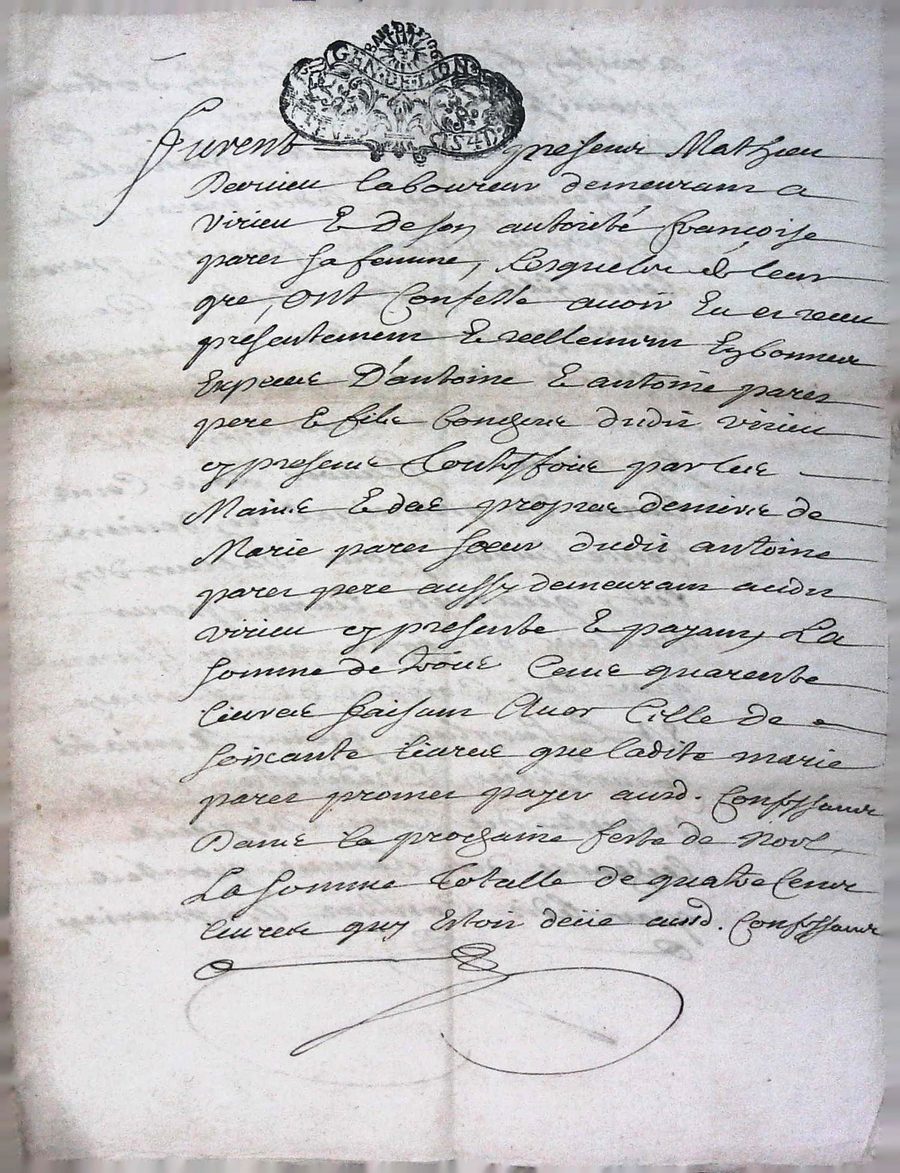 GEN·DE·LION
Furent presens Mathieu
Devrieu laboureur demeurant a
virieu & de son autorité françoise
paret sa femme, lesquels de leur
gré, ont confessé avoir Eu et receu
presentement & reellement En bonnes
Especes D'antoine & antoine paret
pere & fils dudit virieu
cy presens toutesfois par les
Mains & des propres deniers de
Marie paret soeur dudit antoine
paret pere aussy demeurant audit
virieu cy presente & payant, La
somme de trois Cens quarente
livres faisant Avec Celle de
soixante livres que ladite marie
paret promet payer ausd. Confessans
Dans la prochaine feste de Noel
La somme totalle de quatre Cens
livres quy Estoit deüe ausd. Confessans